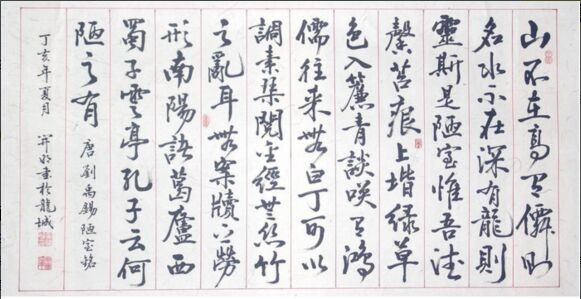 山不在高有僊則
名水不在深有龍則
靈斯是陋室惟吾德
馨苔痕上堦緑草
色入簾青談咲有鴻
儒往來無白丁可以
調素琴閲金經無絲竹
之亂耳無案牘之勞
形南陽諸葛廬西
蜀子雲亭孔子云何
陋之有 唐劉禹錫陋室銘
丁亥年夏月 書於龍城